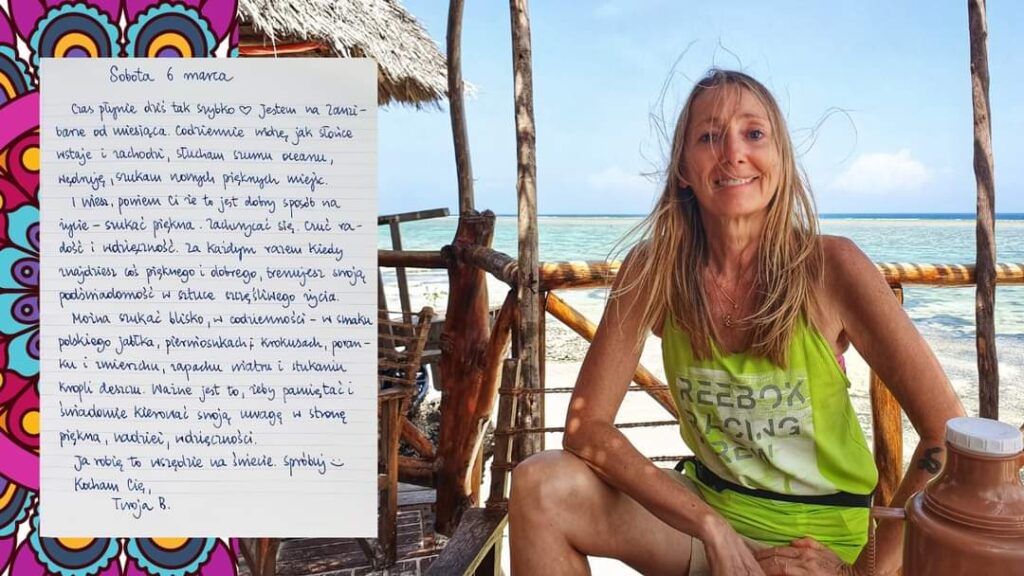 Sobota 6 marca
Czas płynie dziś tak szybko ♡ Jestem na Zanzi-
barze od miesiąca. Codziennie widzę, jak słońce
wstaje i zachodzi, słucham szumu oceanu,
wędruję, szukam nowych pięknych miejsc.
I wiesz, powiem Ci że to jest dobry sposób na
życie – szukać piękna. Zachwycać się. Czuć ra-
dość i wdzięczność. Za każdym razem kiedy
znajdziesz coś pięknego i dobrego, trenujesz swoją
podświadomość w sztuce szczęśliwego życia.
Można szukać blisko, w codzienności – w smaku
polskiego jabłka, pierwiosnkach i krokusach, poran-
ku i zmierzchu, zapachu wiatru i stukaniu
kropli deszczu. Ważne jest to, żeby pamiętać i
świadomie kierować swoją uwagę w stronę
piękna, nadziei, wdzięczności.
Ja robię to wszędzie na świecie. Spróbuj ☺
Kocham Cię,
Twoja B.
REEBOK
RACING
CREW